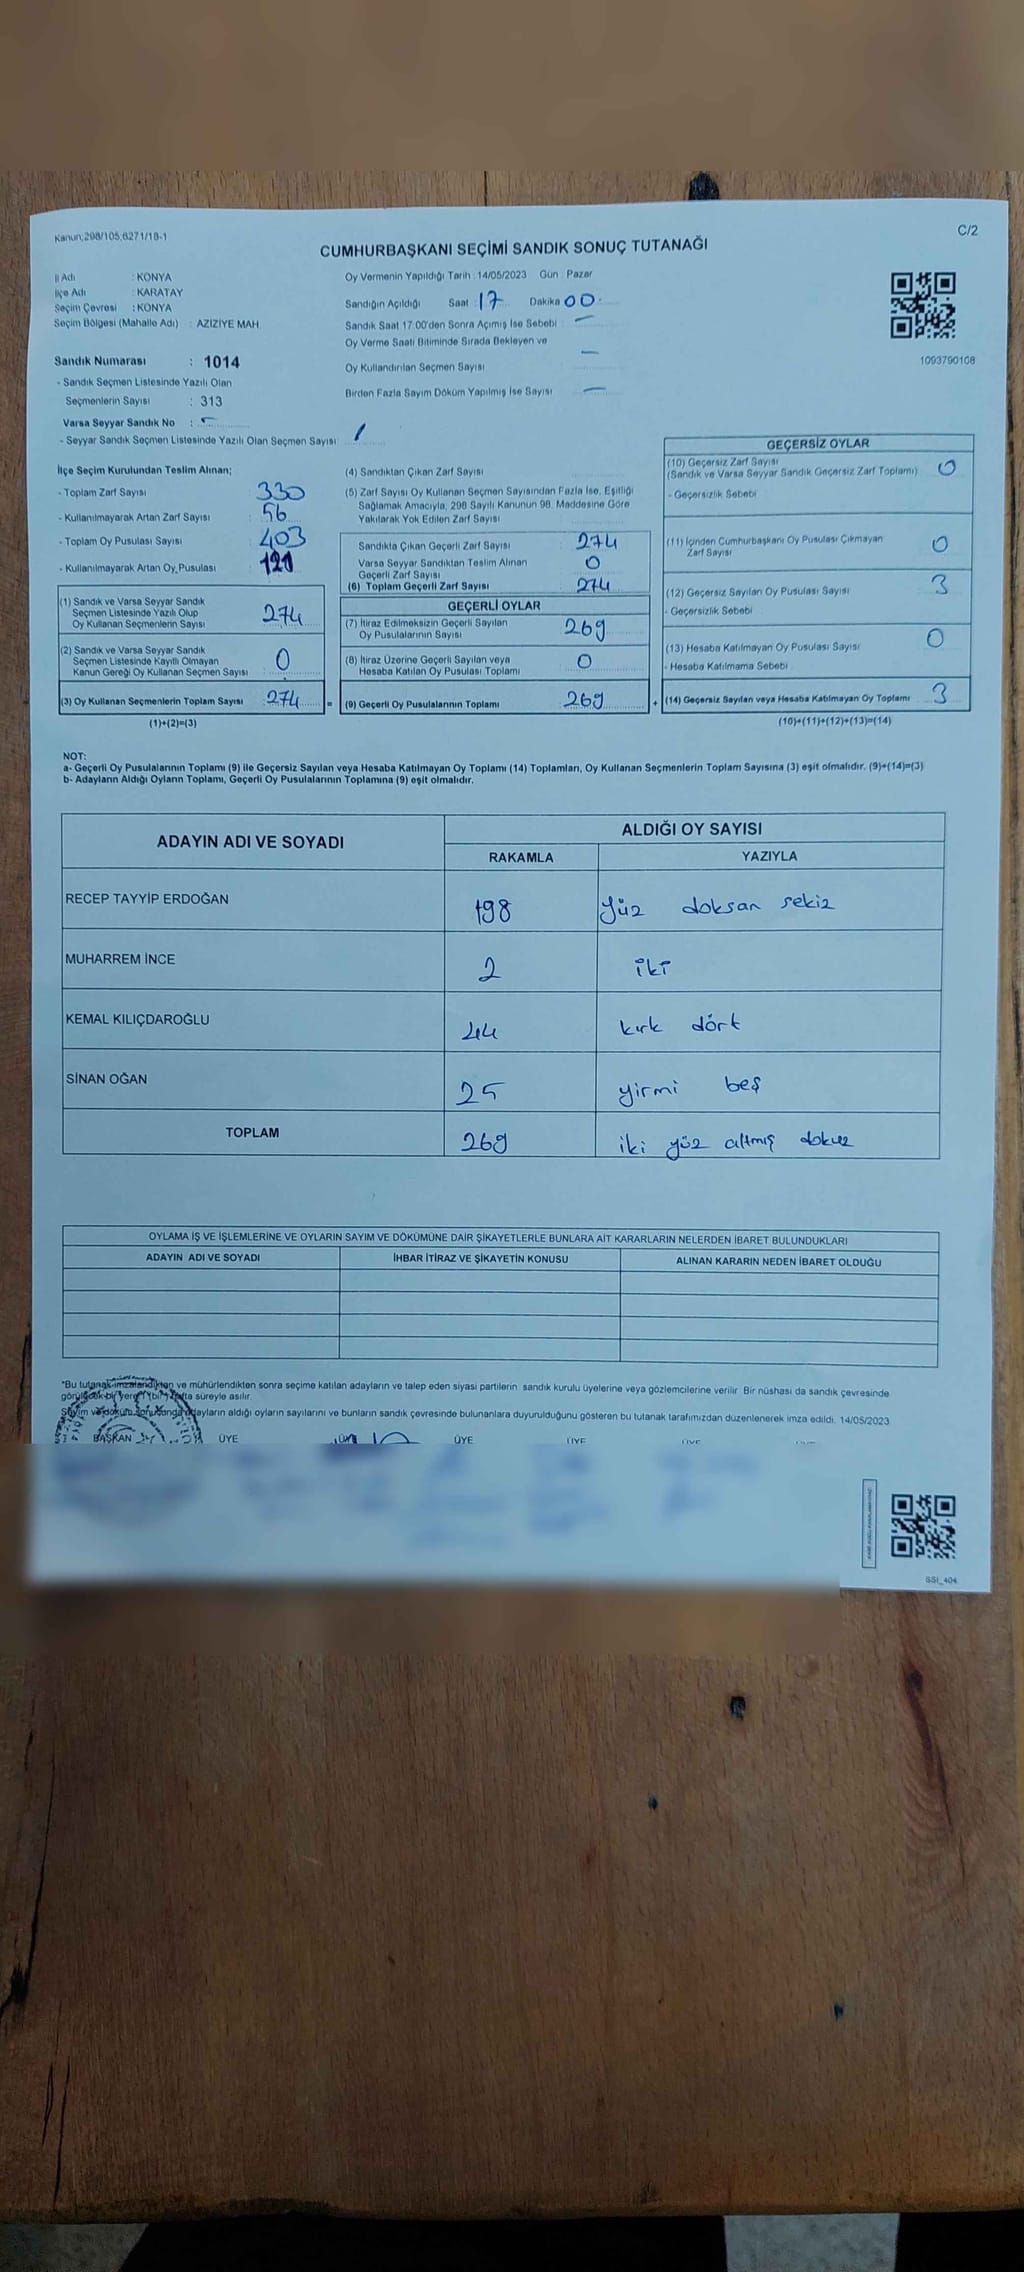 Kanun:298/105,6271/18-1
C/2
CUMHURBAŞKANI SEÇİMİ SANDIK SONUÇ TUTANAĞI
İl Adı : KONYA
İlçe Adı : KARATAY
Seçim Çevresi : KONYA
Seçim Bölgesi (Mahalle Adı) : AZİZİYE MAH.
Oy Vermenin Yapıldığı Tarih : 14/05/2023 Gün : Pazar
Sandığın Açıldığı Saat : 17 Dakika 00
Sandık Saat 17.00'den Sonra Açımış İse Sebebi : —
Oy Verme Saati Bitiminde Sırada Bekleyen ve
Oy Kullandırılan Seçmen Sayısı —
Birden Fazla Sayım Döküm Yapılmış İse Sayısı —
1093790108
Sandık Numarası : 1014
- Sandık Seçmen Listesinde Yazılı Olan
Seçmenlerin Sayısı : 313
Varsa Seyyar Sandık No :
- Seyyar Sandık Seçmen Listesinde Yazılı Olan Seçmen Sayısı /
İlçe Seçim Kurulundan Teslim Alınan;
- Toplam Zarf Sayısı 330
- Kullanılmayarak Artan Zarf Sayısı : 56
- Toplam Oy Pusulası Sayısı : 403
- Kullanılmayarak Artan Oy Pusulası
(1) Sandık ve Varsa Seyyar Sandık
Seçmen Listesinde Yazılı Olup
Oy Kullanan Seçmenlerin Sayısı 274
(2) Sandık ve Varsa Seyyar Sandık
Seçmen Listesinde Kayıtlı Olmayan
Kanun Gereği Oy Kullanan Seçmen Sayısı 0
(3) Oy Kullanan Seçmenlerin Toplam Sayısı 274 =
(1)+(2)=(3)
(4) Sandıktan Çıkan Zarf Sayısı
(5) Zarf Sayısı Oy Kullanan Seçmen Sayısından Fazla İse, Eşitliği
Sağlamak Amacıyla, 298 Sayılı Kanunun 98. Maddesine Göre
Yakılarak Yok Edilen Zarf Sayısı
Sandıkta Çıkan Geçerli Zarf Sayısı 274
Varsa Seyyar Sandıktan Teslim Alınan
Geçerli Zarf Sayısı 0
(6) Toplam Geçerli Zarf Sayısı 274
GEÇERLİ OYLAR
(7) İtiraz Edilmeksizin Geçerli Sayılan
Oy Pusulalarının Sayısı 269
(8) İtiraz Üzerine Geçerli Sayılan veya
Hesaba Katılan Oy Pusulası Toplamı 0
(9) Geçerli Oy Pusulalarının Toplamı 269 +
GEÇERSİZ OYLAR
(10) Geçersiz Zarf Sayısı
(Sandık ve Varsa Seyyar Sandık Geçersiz Zarf Toplamı) 0
- Geçersizlik Sebebi
(11) İçinden Cumhurbaşkanı Oy Pusulası Çıkmayan
Zarf Sayısı 0
(12) Geçersiz Sayılan Oy Pusulası Sayısı 3
- Geçersizlik Sebebi
(13) Hesaba Katılmayan Oy Pusulası Sayısı 0
- Hesaba Katılmama Sebebi
(14) Geçersiz Sayılan veya Hesaba Katılmayan Oy Toplamı 3
(10)+(11)+(12)+(13)=(14)
NOT:
a- Geçerli Oy Pusulalarının Toplamı (9) ile Geçersiz Sayılan veya Hesaba Katılmayan Oy Toplamı (14) Toplamları, Oy Kullanan Seçmenlerin Toplam Sayısına (3) eşit olmalıdır. (9)+(14)=(3)
b- Adayların Aldığı Oyların Toplamı, Geçerli Oy Pusulalarının Toplamına (9) eşit olmalıdır.
ADAYIN ADI VE SOYADI
ALDIĞI OY SAYISI
RAKAMLA YAZIYLA
RECEP TAYYİP ERDOĞAN 198 Yüz doksan sekiz
MUHARREM İNCE 2 iki
KEMAL KILIÇDAROĞLU 44 kırk dört
SİNAN OĞAN 25 yirmi beş
TOPLAM 269 iki yüz altmış dokuz
OYLAMA İŞ VE İŞLEMLERİNE VE OYLARIN SAYIM VE DÖKÜMÜNE DAİR ŞİKAYETLERLE BUNLARA AİT KARARLARIN NELERDEN İBARET BULUNDUKLARI
ADAYIN ADI VE SOYADI İHBAR İTİRAZ VE ŞİKAYETİN KONUSU ALINAN KARARIN NEDEN İBARET OLDUĞU
*Bu tutanak imzalandıktan ve mühürlendikten sonra seçime katılan adayların ve talep eden siyasi partilerin sandık kurulu üyelerine veya gözlemcilerine verilir. Bir nüshası da sandık çevresinde
görülecek bir yere 1 (bir) hafta süreyle asılır.
Sayım ve döküm sonucunda adayların aldığı oyların sayılarını ve bunların sandık çevresinde bulunanlara duyurulduğunu gösteren bu tutanak tarafımızdan düzenlenerek imza edildi. 14/05/2023
BAŞKAN ÜYE ÜYE ÜYE ÜYE
SSI_404